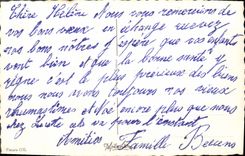 Chère Hélène Nous vous remercions de
vos bons vœux en échange recevez
nos bons nôtres j'espère que vos enfants
vont bien et que la bonne santé y
règne c'est le plus précieux des biens
nous nous avons toujours nos vieux
rhumatismes et Noé encore plus que nous
chez Lucette elle va pour l'instant
Amitiés Famille